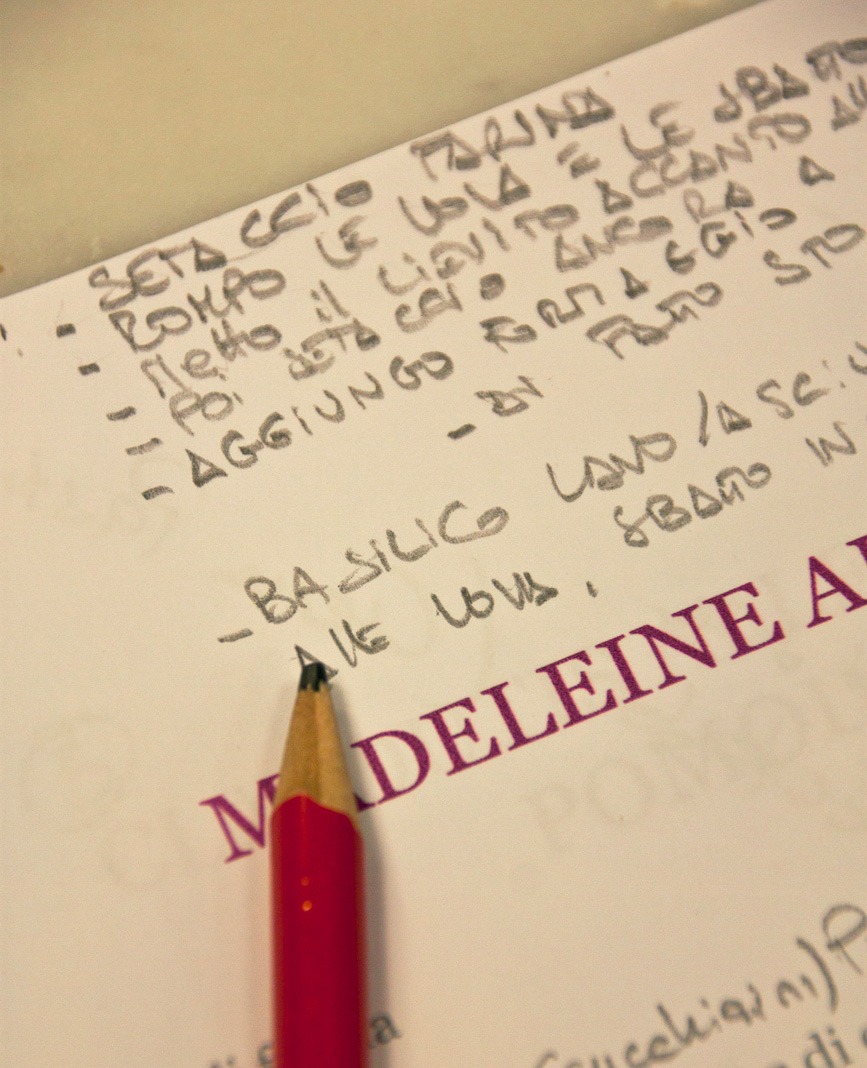 SETACCIO FARINA
- ROMPO LE UOVA E LE SBATTO
- METTO il LIEVITO ACCANTO
- POI SETACCIO ANCORA A
- AGGIUNGO FORMAGGIO
- DI FATTO STO
- BASILICO LAVO / ASCIU
ALLE UOVA, SBATTO IN
MADELEINE
cucchiaini) P
di